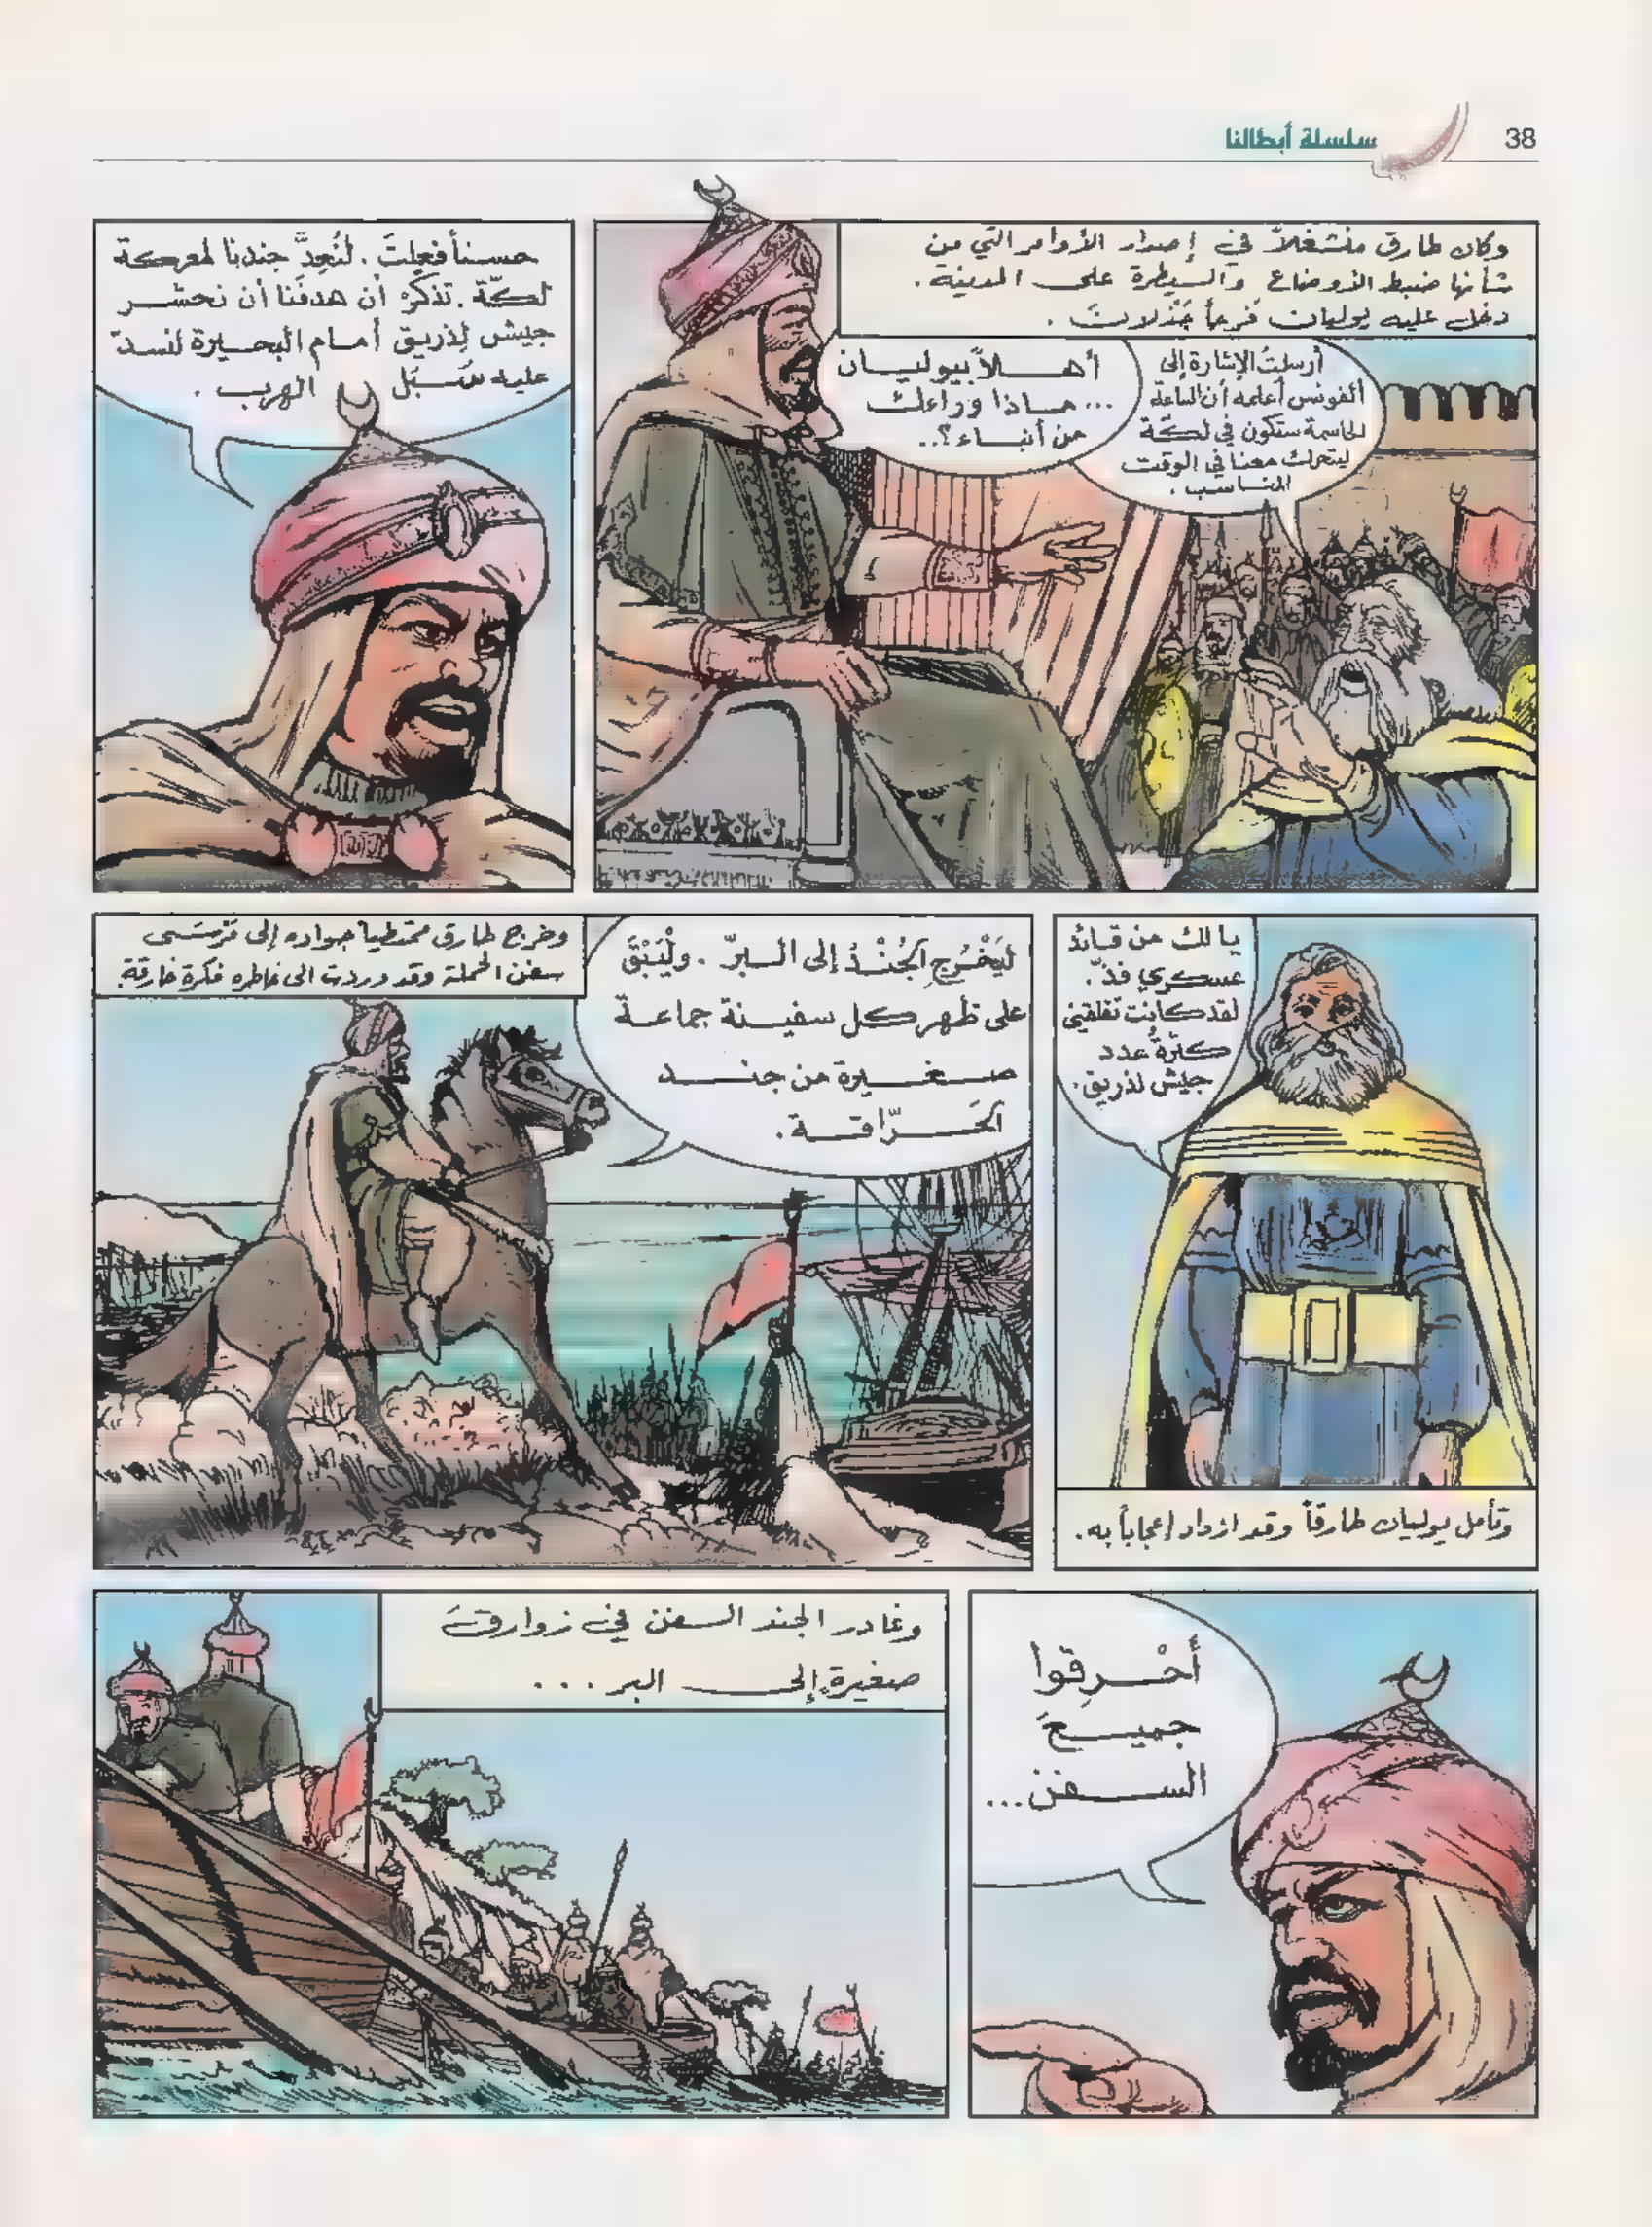 38
سلسلة أبطالنا
وكان طارق منشغلاً في إصدار الأوامر التي من
شأنها ضبط الأوضاع والسيطرة على المدينة.
دخل عليه يوليان فَرِحاً جَذْلانَ.
أهلاً بيوليان
... ماذا وراءك
من أنباء؟..
أرسلتُ الإشارة إلى
ألفونس أُعلمه أن الساعة
الحاسمة ستكون في لكّة
ليتحرك معنا في الوقت
المناسب.
حسناً فعلتَ. لنُعِدَّ جندنا لمعركة
لكّة. تذكّر أن هدفَنا أن نحشر
جيش لذريق أمام البحيرة لنسدّ
عليه سُبَل الهرب.
يا لك من قائد
عسكري فذّ.
لقد كانت تقلقني
كثرةُ عدد
جيش لذريق.
وتأمل يوليان طارقاً وقد ازداد إعجاباً به.
وخرج طارق ممتطياً جواده إلى مَرْسَى
سفن الحملة وقد وردت الى خاطره فكرة خارقة.
ليَخْرُجِ الجُنْدُ إلى البرّ. ولْيَبْقَ
على ظهر كل سفينة جماعةٌ
صغيرة من جند
الحَرّاقة.
أَحْرِقوا
جميعَ
السفن...
وغادر الجند السفن في زوارقَ
صغيرةٍ إلى البر...